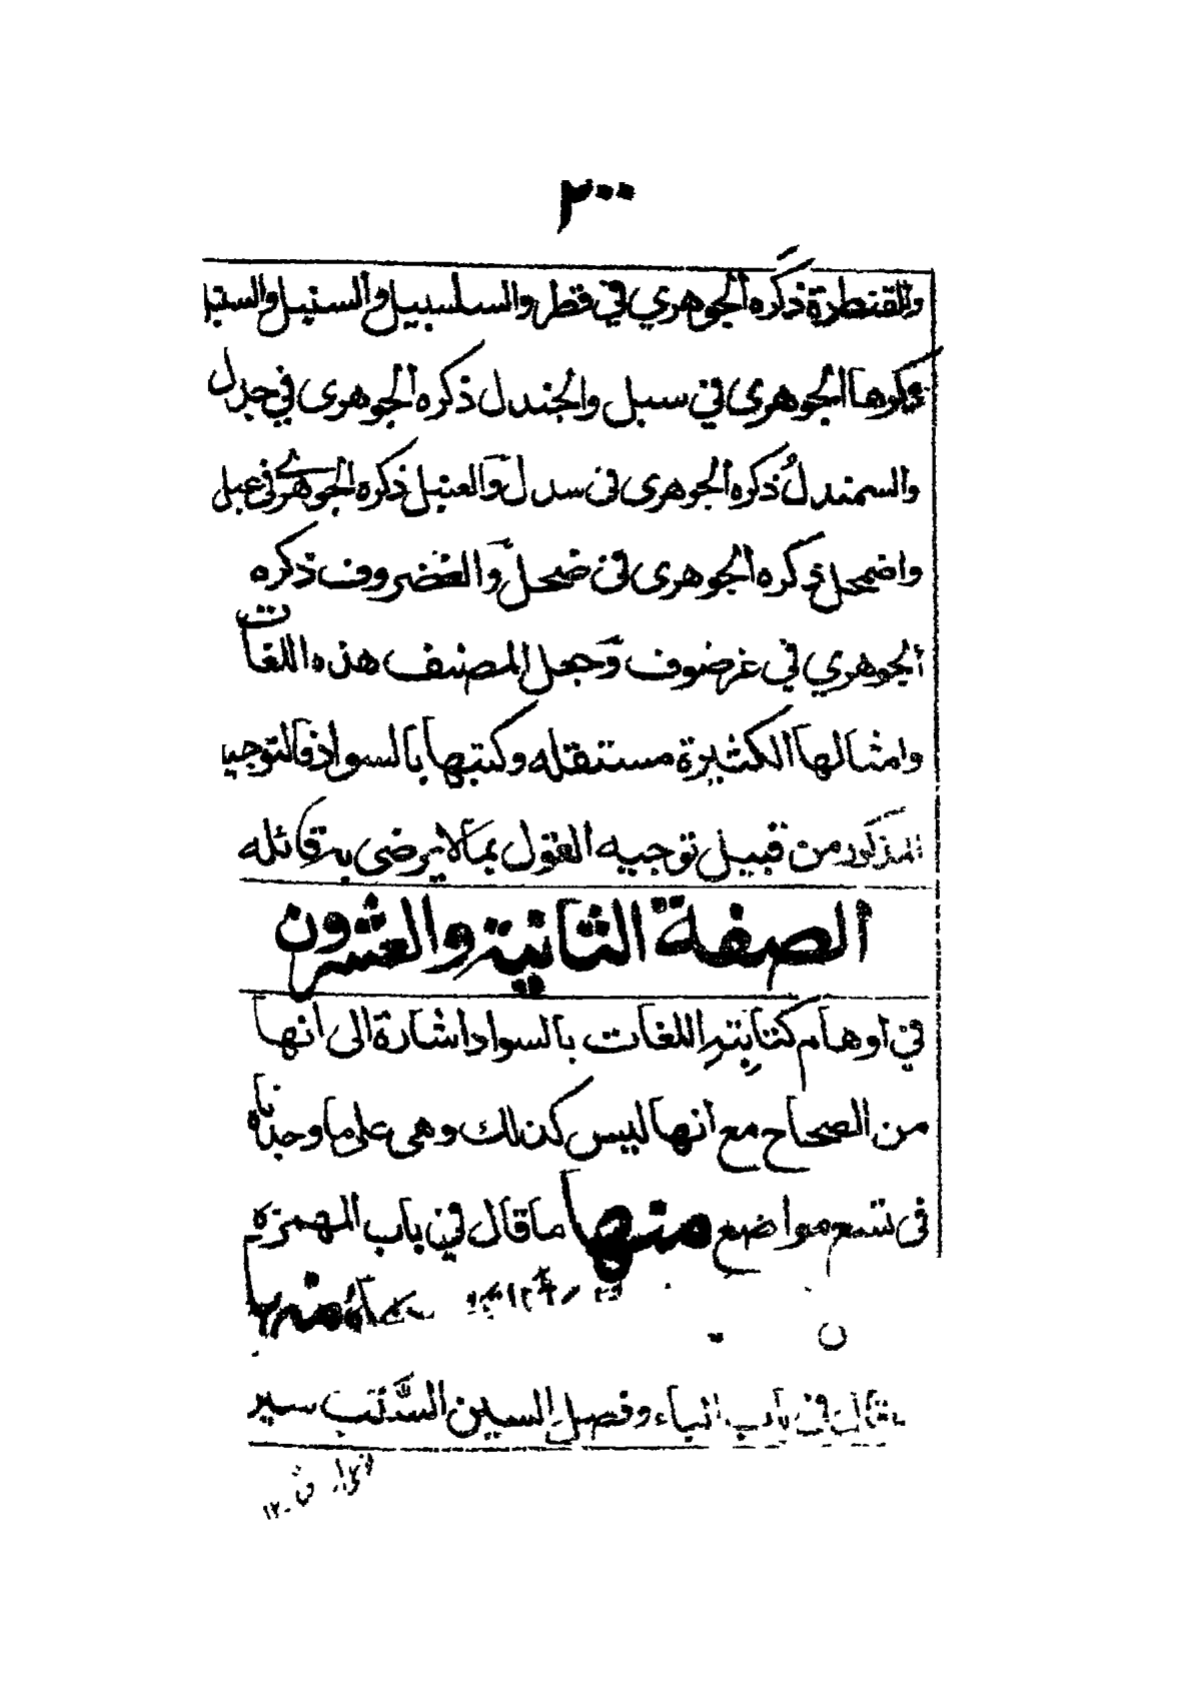 ٢٠٠
والقنطرة ذكره الجوهري في قطر والسلسبيل والسنبل والسنبل
ذكرها الجوهرى في سبل والجندل ذكره الجوهرى في جدل
والسمندل ذكره الجوهرى فى سدل والعنبل ذكره الجوهرى فى عبل
واضمحل ذكره الجوهرى فى ضحل والغضروف ذكره
الجوهري في غرضوف وجعل المصنف هذه اللغات
وامثالها الكثيرة مستقله وكتبها بالسواد فالتوجيه
المذكور من قبيل توجيه القول بما لا يرضى به قائله
الصفة الثانية والعشرون
في اوهام كتابته اللغات بالسواد اشارة الى انها
من الصحاح مع انها ليس كذلك وهى على ما وجدناه
فى تسع مواضع منها ما قال في باب الهمزة
منها
ما قال في باب الباء وفصل السين السئتب سير
١٢